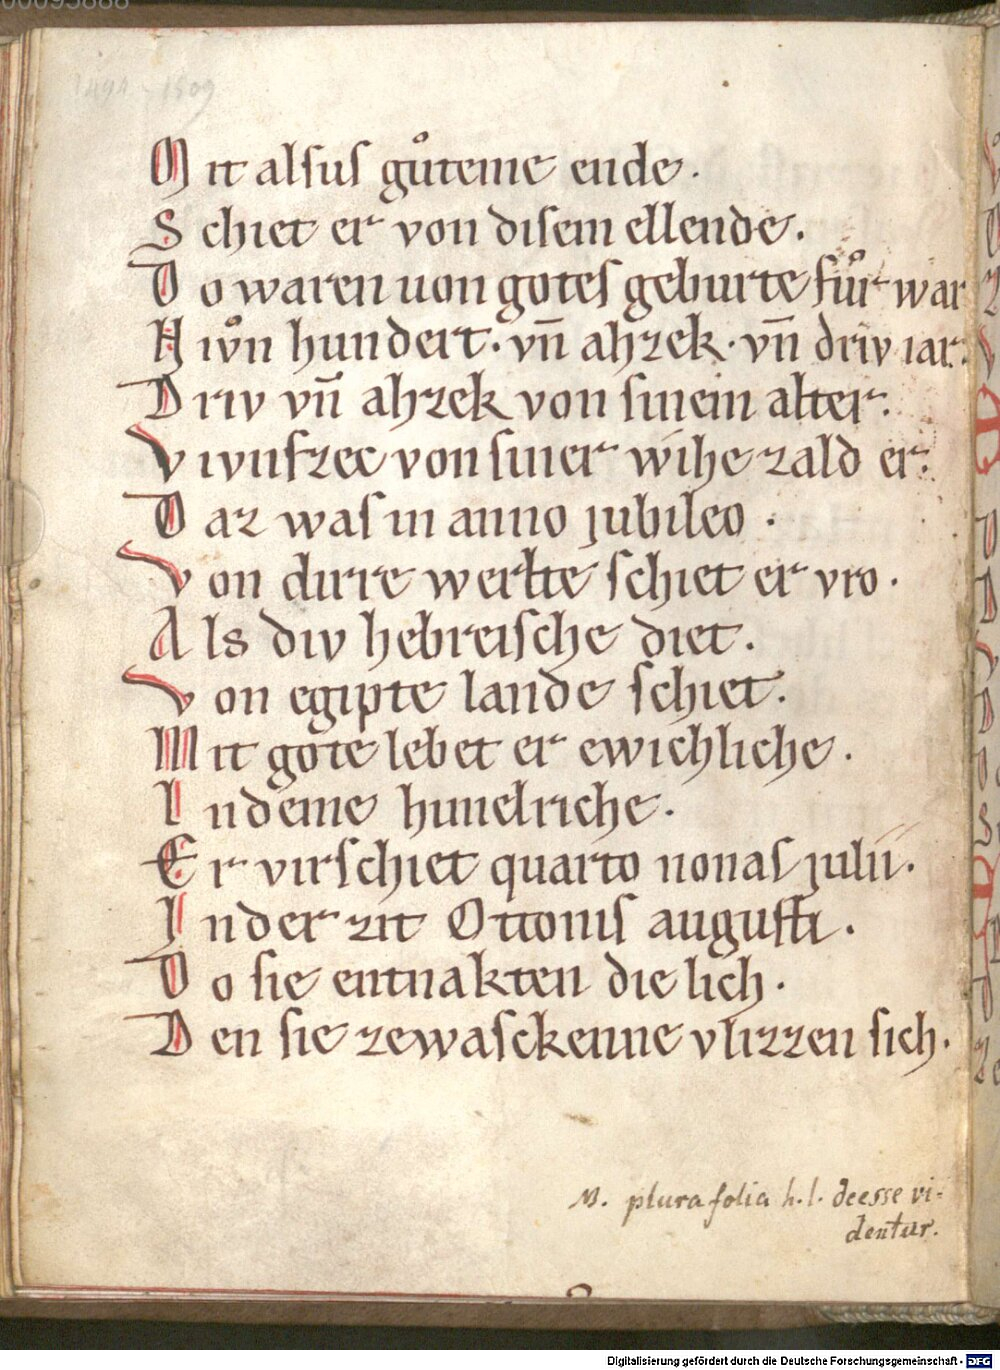 00095888
1494 - 1509
Mit alsus gůteme ende.
Schiet er von disem ellende.
Do waren uon gotes geburte fůr war
Niv̊n hundert. vn̄ ahzek. vn̄ driv iar.
Driv vn̄ ahzek von sinem alter.
Vivnfzec von siner wihe zald er.
Daz was in anno jubileo.
Von dirre werlte schiet er vro.
Als div hebreische diet.
Von egipte lande schiet.
Mit gote lebet er ewichliche.
In deme himelriche.
Er virschiet quarto nonas julii.
In der zit Ottonis augusti.
Do sie entnakten die lich.
Den sie zewasckenne vlizzen sich.
N. plura folia h.l. deesse vi-
dentur.
Digitalisierung gefördert durch die Deutsche Forschungsgemeinschaft - DFG